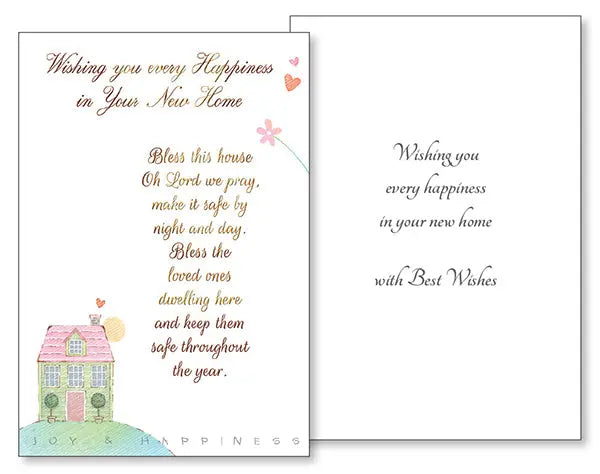 Wishing you every Happiness
in Your New Home
Bless this house
Oh Lord we pray,
make it safe by
night and day.
Bless the
loved ones
dwelling here
and keep them
safe throughout
the year.
JOY & HAPPINESS
Wishing you
every happiness
in your new home
with Best Wishes